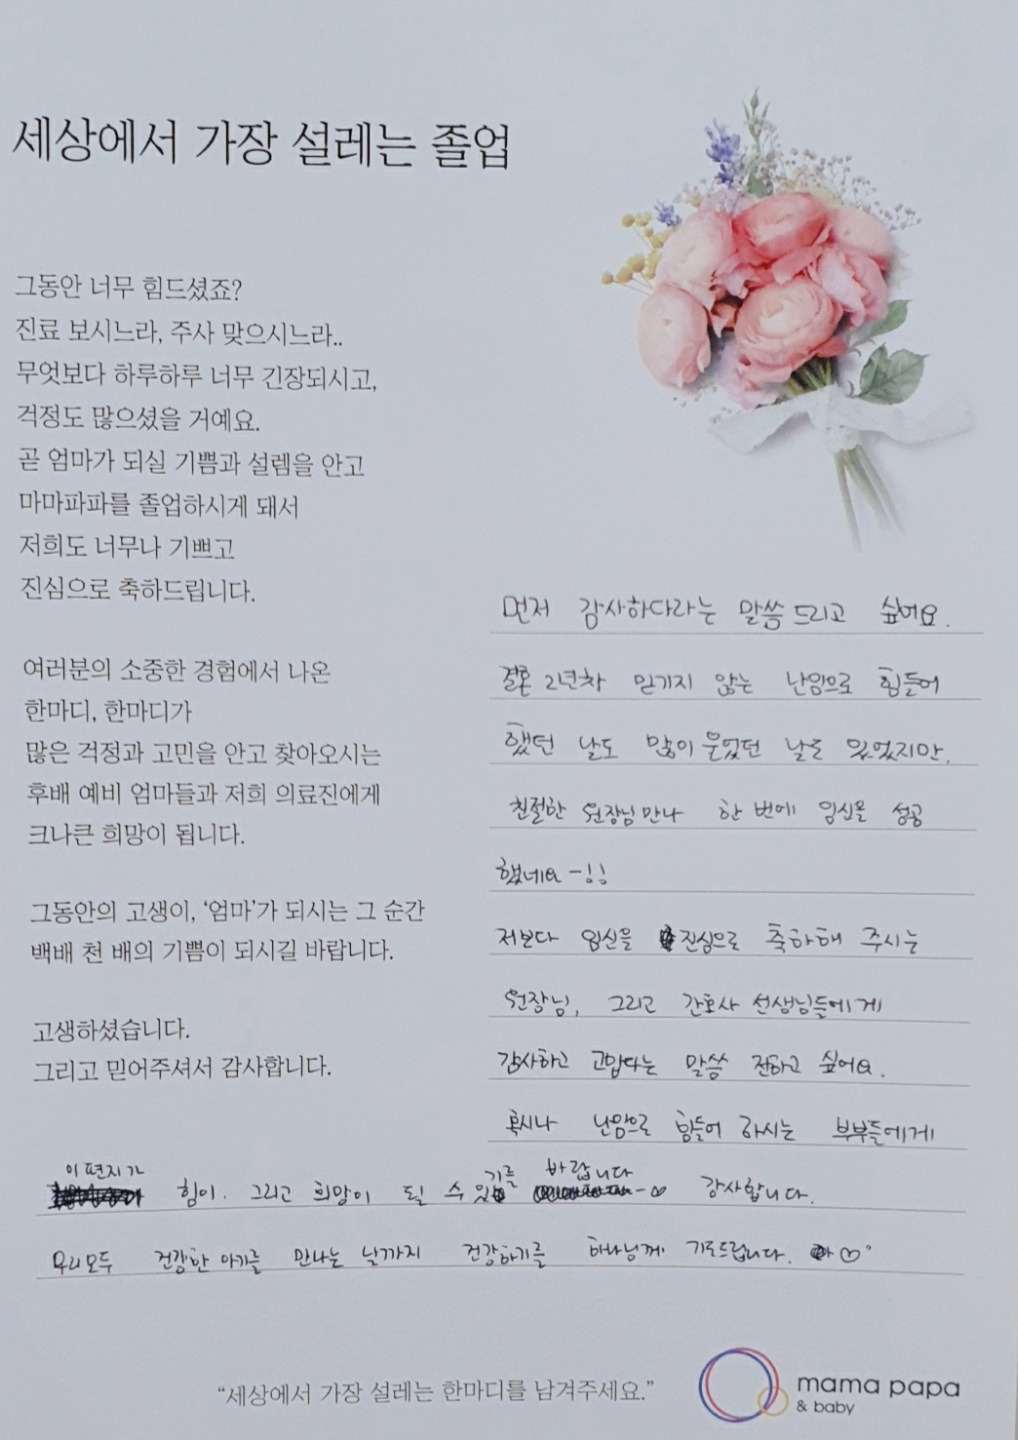 세상에서 가장 설레는 졸업
그동안 너무 힘드셨죠?
진료 보시느라, 주사 맞으시느라..
무엇보다 하루하루 너무 긴장되시고,
걱정도 많으셨을 거예요.
곧 엄마가 되실 기쁨과 설렘을 안고
마마파파를 졸업하시게 돼서
저희도 너무나 기쁘고
진심으로 축하드립니다.
여러분의 소중한 경험에서 나온
한마디, 한마디가
많은 걱정과 고민을 안고 찾아오시는
후배 예비 엄마들과 저희 의료진에게
크나큰 희망이 됩니다.
그동안의 고생이, ‘엄마’가 되시는 그 순간
백배 천 배의 기쁨이 되시길 바랍니다.
고생하셨습니다.
그리고 믿어주셔서 감사합니다.
먼저 감사하다라는 말씀 드리고 싶어요.
결혼 2년차 믿기지 않는 난임으로 힘들어
했던 날도 많이 울었던 날도 있었지만,
친절한 원장님 만나 한 번에 임신을 성공
했네요-!!
저보다 임신을 진심으로 축하해 주시는
원장님, 그리고 간호사 선생님들에게
감사하고 고맙다는 말씀 전하고 싶어요.
혹시나 난임으로 힘들어 하시는 부부들에게
이 편지가 힘이. 그리고 희망이 될 수 있기를 바랍니다 ~♡ 감사합니다.
우리모두 건강한 아기를 만나는 날까지 건강하기를 하나님께 기도드립니다. ♡
“세상에서 가장 설레는 한마디를 남겨주세요.”
mama papa
& baby